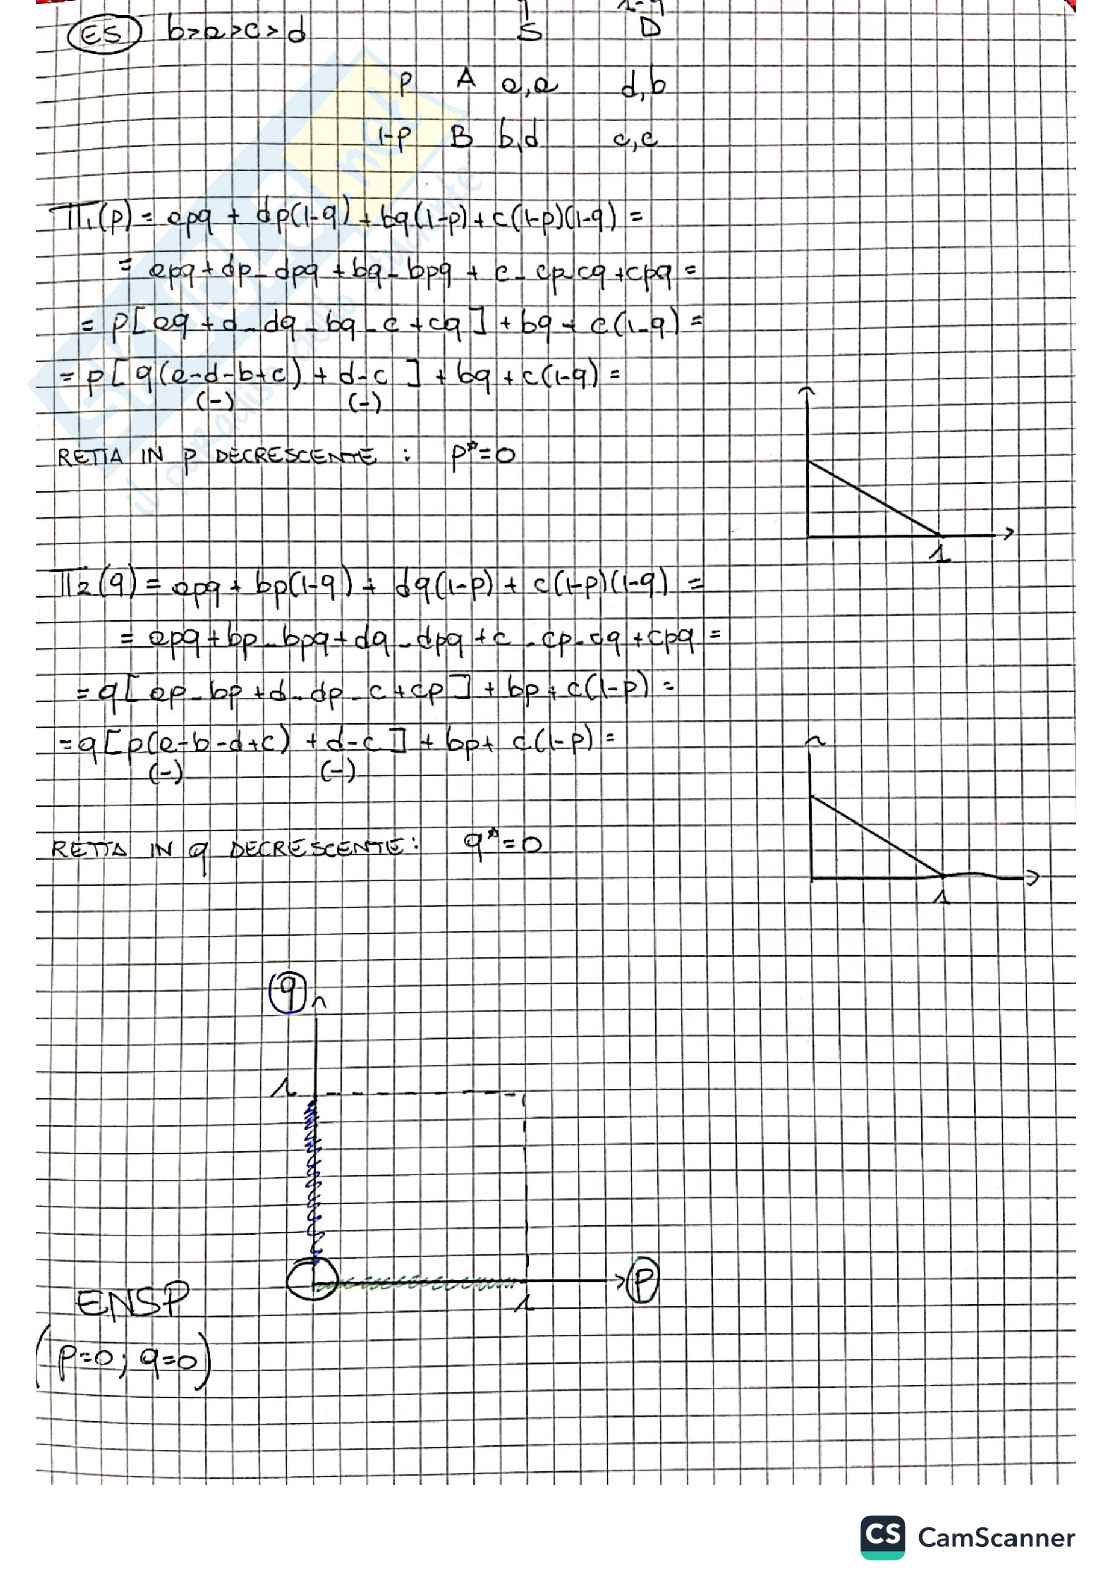 ES b>a>c>d
S D
P A a,a d,b
1-P B b,d c,c
π₁(p) = apq + dp(1-q) + bq(1-p) + c(1-p)(1-q) =
= apq + dp - dpq + bq - bpq + c - cp - cq + cpq =
= p[aq + d - dq - bq - c + cq] + bq + c(1-q) =
= p[q(a-d-b+c) + d-c] + bq + c(1-q) =
(-) (-)
RETTA IN p DECRESCENTE : p*=0
1
π₂(q) = apq + bp(1-q) + dq(1-p) + c(1-p)(1-q) =
= apq + bp - bpq + dq - dpq + c - cp - cq + cpq =
= q[ap - bp + d - dp - c + cp] + bp + c(1-p) =
= q[p(a-b-d+c) + d-c] + bp + c(1-p) =
(-) (-)
RETTA IN q DECRESCENTE: q*=0
1
q
1
P
1
ENSP
(p=0; q=0)
CS CamScanner